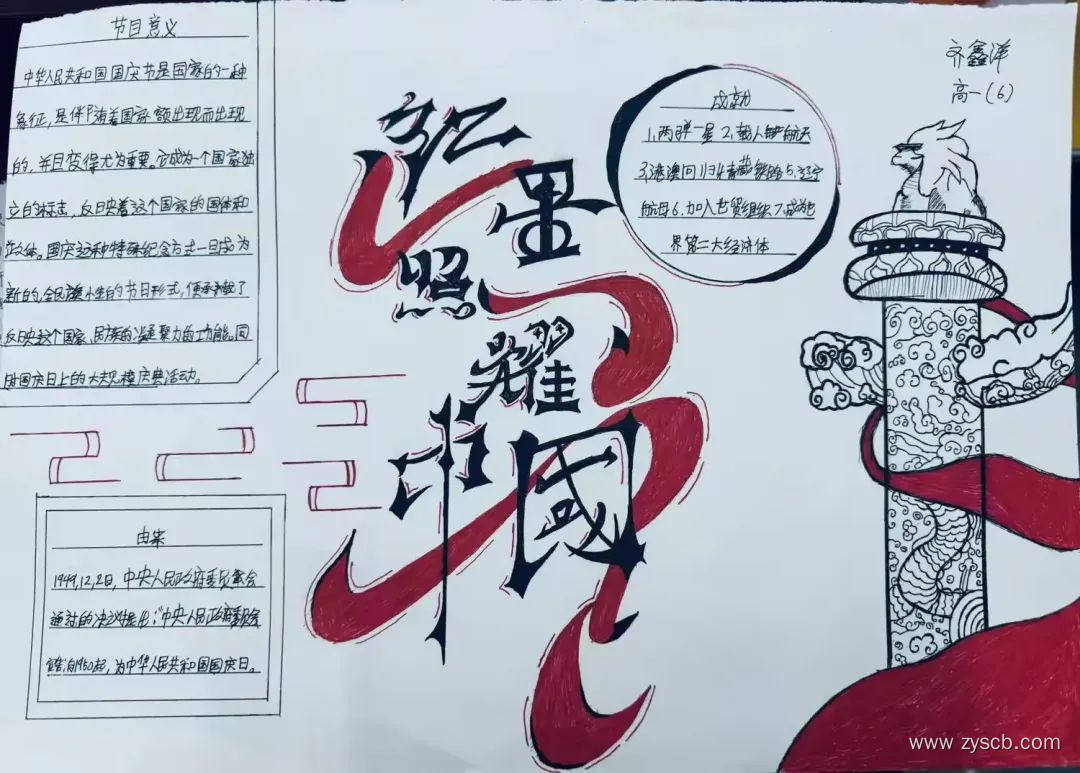 节目意义
中华人民共和国国庆节是国家的一种
象征,是伴随着国家 出现而出现
的,并且变得尤为重要。它成为一个国家独
立的标志,反映着这个国家的国体和
政体。国庆这种特殊纪念方式一旦成为
新的,全民 的节日形式,便承载了
反映这个国家、民族的凝聚力的功能。同
时国庆日上的大规模庆典活动。
由来
1949,12,2日,中央人民政府委员会
通过的决议 :“中央人民政府委员会
宣告自1950起,为中华人民共和国国庆日。
红星
照耀
中國
成就
1.两弹一星2.载人 航天
3.港澳回归4青藏铁路5.辽宁
航母6.加入世贸组织7.成为世
界第二大经济体
齐鑫洋
高一(6)
www.zyscb.com